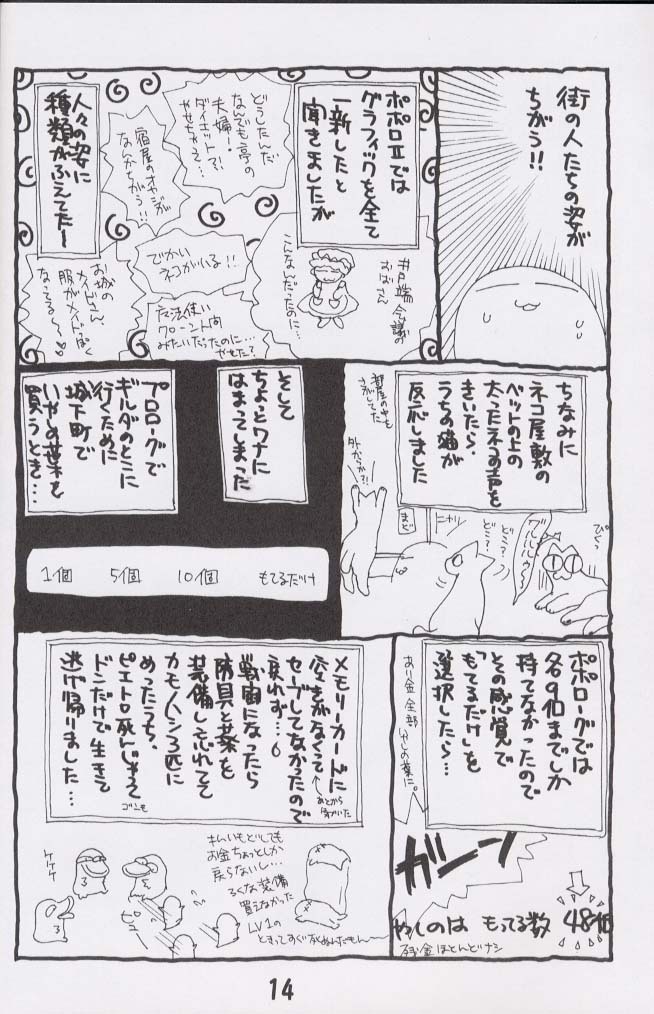 街の人たちの姿が
ちがう!!
ポポロⅡでは
グラフィックを全て
一新したと
聞きましたが
井戸端会議の
おばさん
こんなんだったのに…
どうしたんだ
なんでも亭の
夫婦!
ダイエット?!
やせちゃって…
宿屋のオヤジが
なんかちがう!!
でかい
ネコがいる!!
みたいだったのに…やせた?
お城の
メイドさん、
服がメイドっぽく
なってる〜♡
人々の姿に
種類がふえてた〜
ちなみに
ネコ屋敷の
ベットの上の
太ったネコの声を
きいたら、
うちの猫が
反応しました
ぴくっ
グルルゥ〜
どこ?
どこ?
ニャッ
まど
外かっ?!
部屋の中も
さがしてた
そして
ちょっとワナに
はまってしまった
プロローグで
ギルダのとこに
行くために
城下町で
いやしの葉を
買うとき…
1個 5個 10個 もてるだけ
ポポローグでは
各9個までしか
持てなかったので
その感覚で
「もてるだけ」を
選択したら…
あり金全部いやしの葉に。
ガーン
やしのは もってる数 48個
残金ほとんどナシ
メモリーカードに
空きがなくて
セーブしてなかったので
戻れず…
あとから
気がついた
戦闘になったら
防具と葉を
装備し忘れてて
カモノハシ3匹に
めったうち、
ピエトロ死んじゃって
ゴンも
ドンだけで生きて
逃げ帰りました…
お金ちょっとしか
戻らないし…
ろくな装備
買えなかった
LV1の
ケケケ
ピュー
14